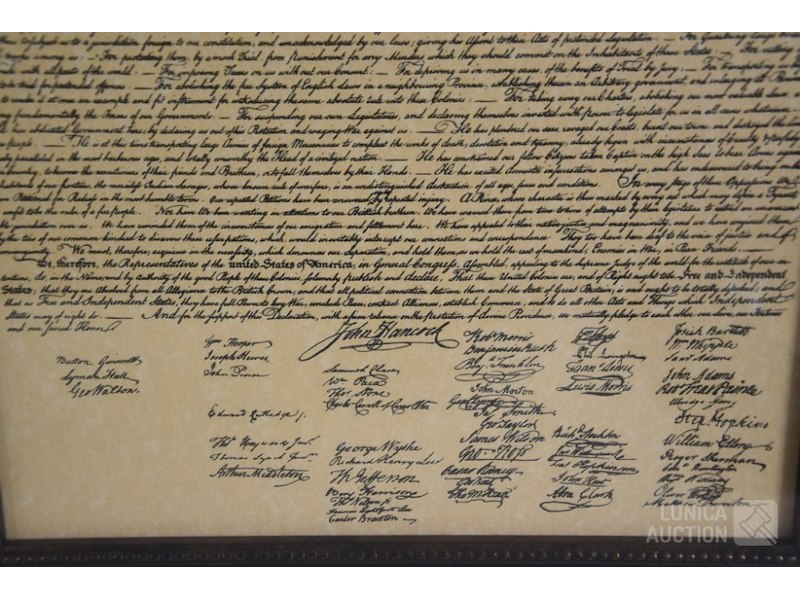 us to a jurisdiction foreign to our constitution, and unacknowledged by our laws; giving his Assent to their Acts of pretended Legislation: — For quartering large
among us: — For protecting them, by a mock Trial, from Punishment for any Murders which they should commit on the Inhabitants of these States: — For cutting
with all parts of the world: — For imposing Taxes on us without our Consent: — For depriving us in many cases, of the benefits of Trial by Jury: — For transporting
to be tried for pretended offences — For abolishing the free System of English Laws in a neighbouring Province, establishing therein an Arbitrary government, and enlarging its
to render it at once an example and fit instrument for introducing the same absolute rule into these Colonies: — For taking away our Charters, abolishing our most valuable Laws,
fundamentally the Forms of our Governments: — For suspending our own Legislatures, and declaring themselves invested with power to legislate for us in all cases whatsoever.
He has abdicated Government here, by declaring us out of his Protection and waging War against us. — He has plundered our seas, ravaged our Coasts, burnt our towns, and destroyed the
people. — He is at this time transporting large Armies of foreign Mercenaries to compleat the works of death, desolation and tyranny, already begun with circumstances of Cruelty & perfidy
paralleled in the most barbarous ages, and totally unworthy the Head of a civilized nation. — He has constrained our fellow Citizens taken Captive on the high Seas to bear Arms
to become the executioners of their friends and Brethren, or to fall themselves by their Hands. — He has excited domestic insurrections amongst us, and has endeavoured to bring
of our frontiers, the merciless Indian Savages, whose known rule of warfare, is an undistinguished destruction of all ages, sexes and conditions. In every stage of these Oppressions We
Petitioned for Redress in the most humble terms: Our repeated Petitions have been answered by repeated injury. A Prince, whose character is thus marked by every act which may define a Tyrant,
unfit to be the ruler of a free people. Nor have We been wanting in attentions to our British brethren. We have warned them from time to time of attempts by their legislature to extend an
jurisdiction over us. We have reminded them of the circumstances of our emigration and settlement here. We have appealed to their native justice and magnanimity, and we have conjured them
by the ties of our common kindred to disavow these usurpations, which, would inevitably interrupt our connections and correspondence. They too have been deaf to the voice of justice and of
We must, therefore, acquiesce in the necessity, which denounces our Separation, and hold them, as we hold the rest of mankind, Enemies in War, in Peace Friends. —
We, therefore, the Representatives of the united States of America, in General Congress, Assembled, appealing to the Supreme Judge of the world for the rectitude of our
do, in the Name, and by authority of the good People of these Colonies, solemnly publish and declare, That these United Colonies are, and of Right ought to be Free and Independent
States; that they are Absolved from all Allegiance to the British Crown, and that all political connection between them and the State of Great Britain, is and ought to be totally dissolved; and
that as Free and Independent States, they have full Power to levy War, conclude Peace, contract Alliances, establish Commerce, and to do all other Acts and Things which Independent
States may of right do. — And for the support of this Declaration, with a firm reliance on the protection of divine Providence, we mutually pledge to each other our Lives, our Fortunes
and our sacred Honor.
John Hancock
Button Gwinnett
Lyman Hall
Geo Walton.
Wm Hooper
Joseph Hewes,
John Penn
Edward Rutledge
Thos Heyward Junr.
Thomas Lynch Junr.
Arthur Middleton
Samuel Chase
Wm Paca
Thos Stone
Charles Carroll of Carrollton
George Wythe
Richard Henry Lee
Th Jefferson
Benj Harrison
Thos Nelson jr.
Francis Lightfoot Lee
Carter Braxton
Robt Morris
Benjamin Rush
Benj Franklin
John Morton
Geo Clymer
Jas Smith
Geo Taylor
James Wilson
Geo Ross
Caesar Rodney
Geo Read
Tho M:Kean
Wm Floyd
Phil Livingston
Frans Lewis
Lewis Morris
Richd Stockton
Jno Witherspoon
Fras Hopkinson
John Hart
Abra Clark
Josiah Bartlett
Wm Whipple
Saml Adams
John Adams
Robt Treat Paine
Elbridge Gerry
Step Hopkins
William Ellery
Roger Sherman
Saml Huntington
Wm Williams
Oliver Wolcott
Matthew Thornton
LUNICA
AUCTION